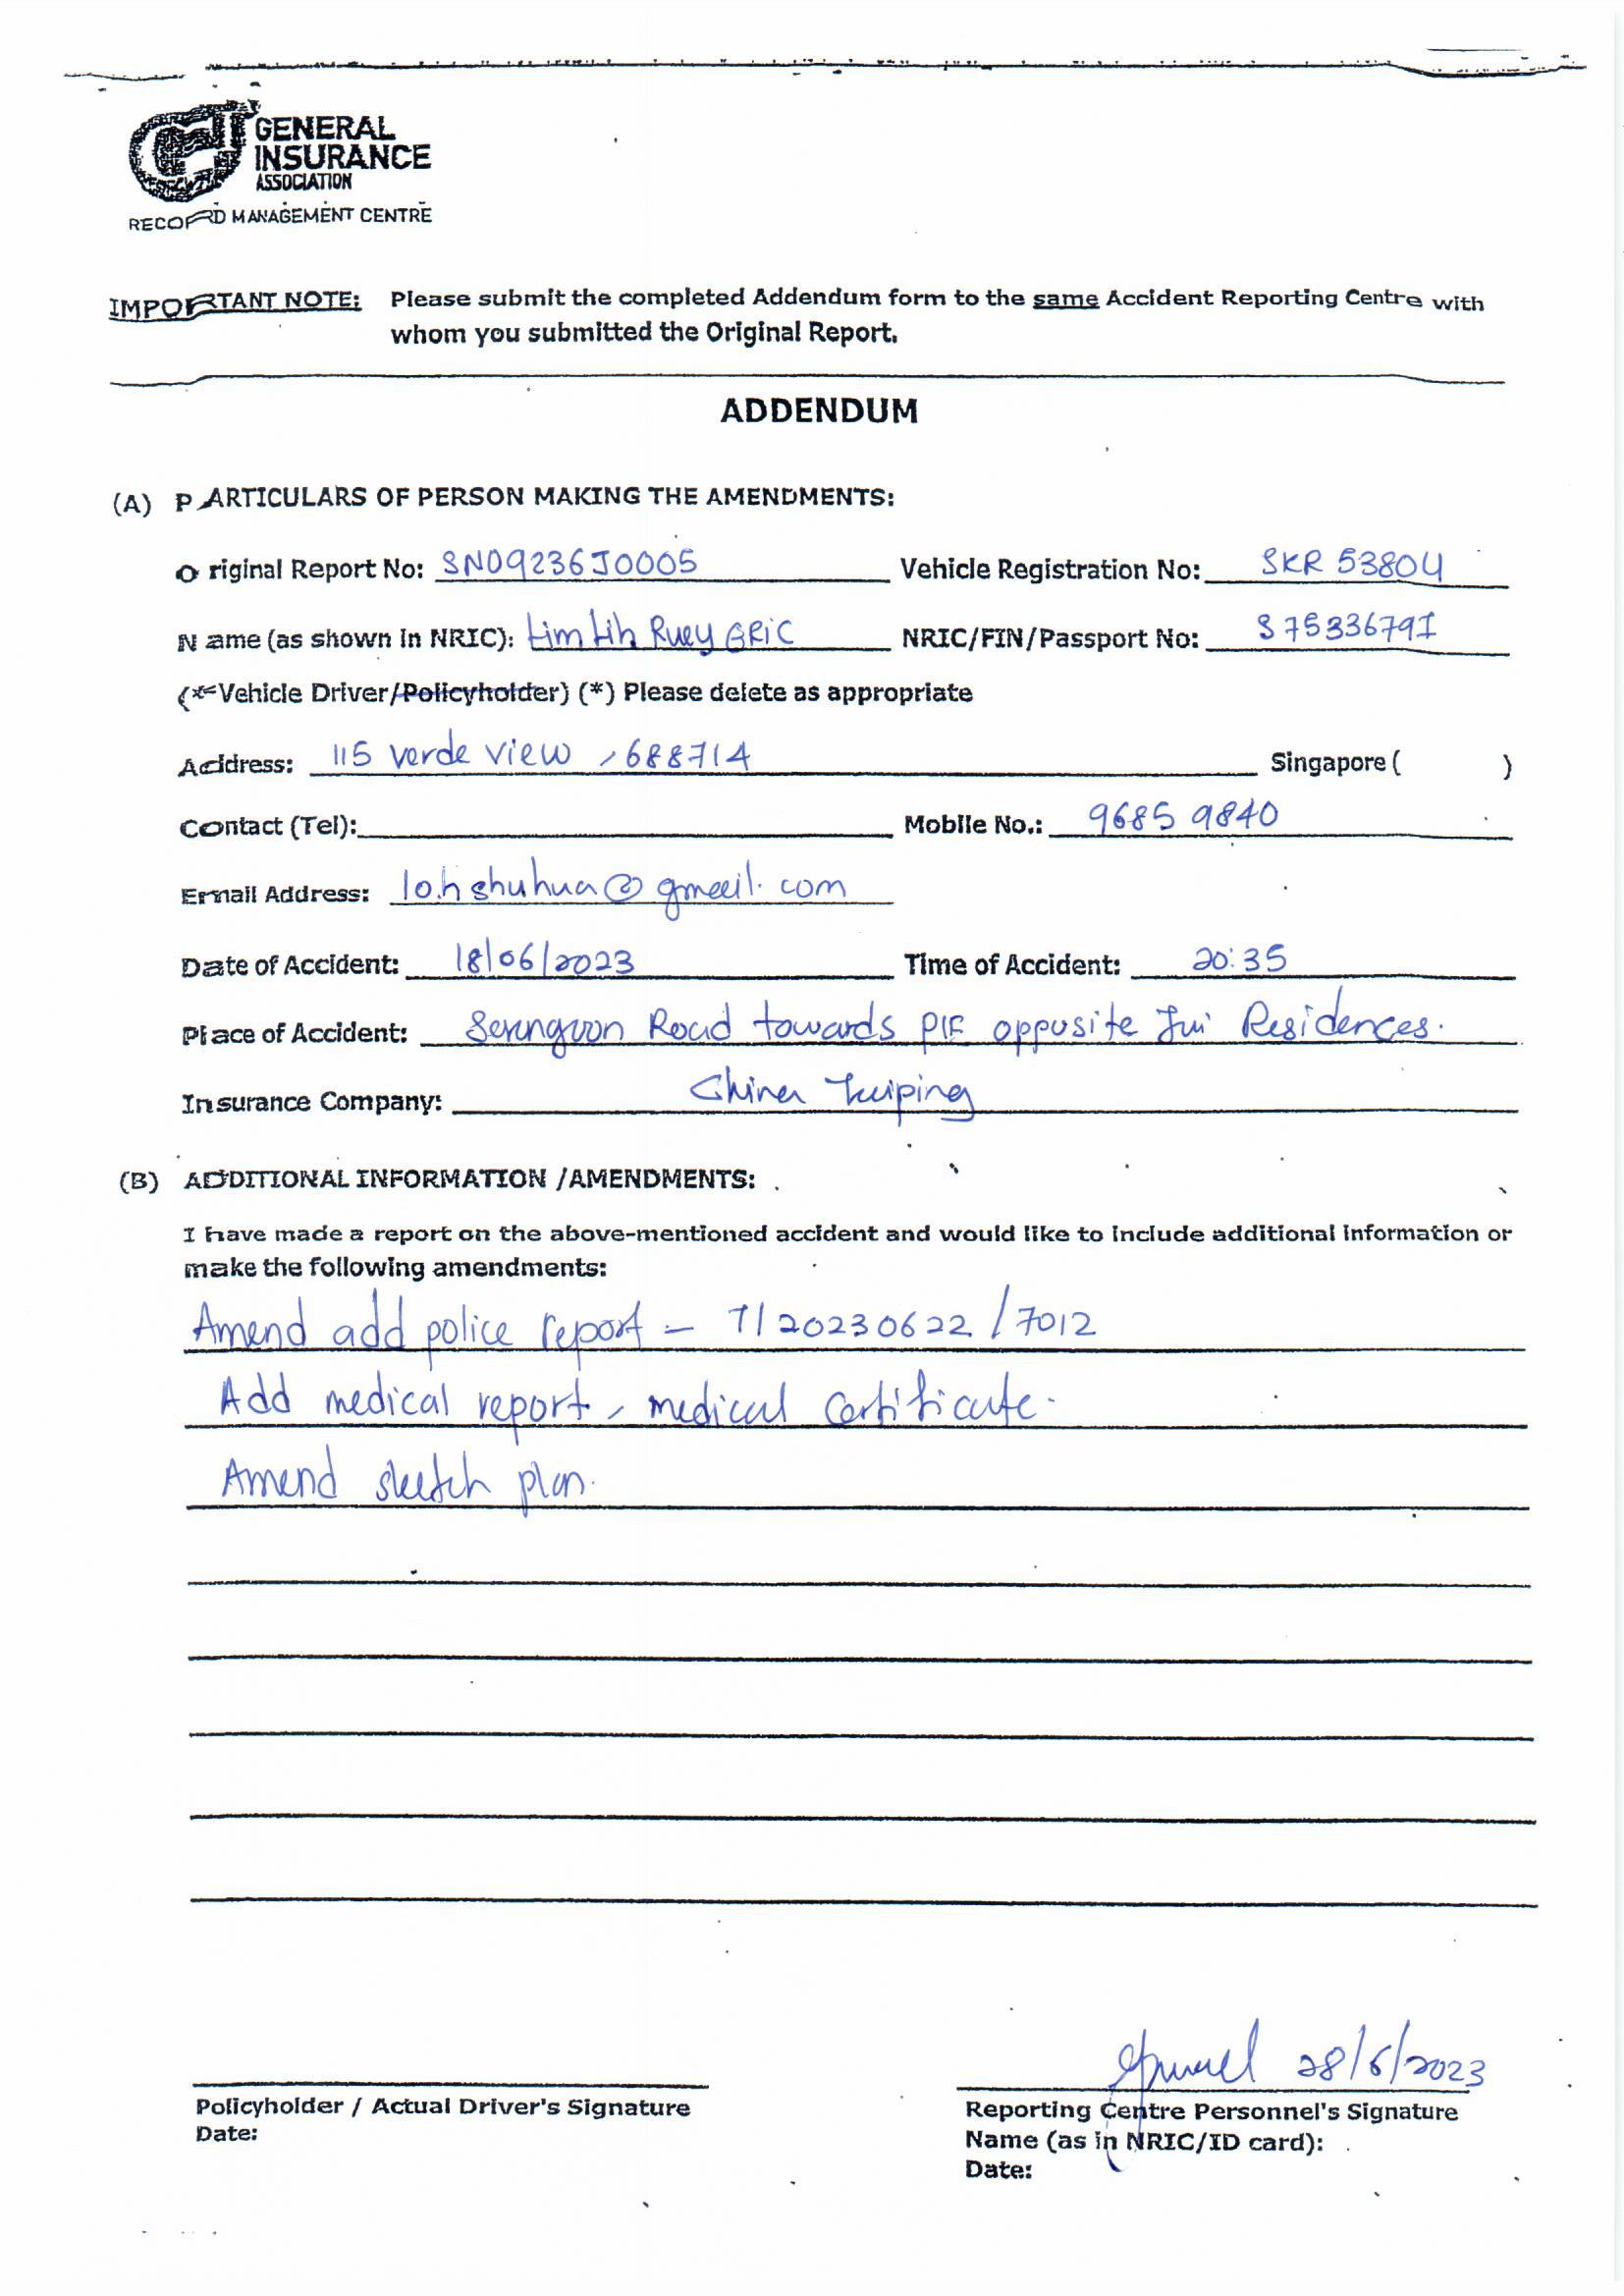 GENERAL
INSURANCE
ASSOCIATION
RECORD MANAGEMENT CENTRE
IMPORTANT NOTE: Please submit the completed Addendum form to the same Accident Reporting Centre with
whom you submitted the Original Report.
ADDENDUM
(A) PARTICULARS OF PERSON MAKING THE AMENDMENTS:
Original Report No: SN09236J0005 Vehicle Registration No: SKR 5380U
Name (as shown in NRIC): Lim Lih Ruey ERIC NRIC/FIN/Passport No: S7533679I
(*Vehicle Driver/Policyholder) (*) Please delete as appropriate
Address: 115 verde view , 688714 Singapore ( )
Contact (Tel): Mobile No.: 9685 9840
Email Address: lohshuhua@gmail.com
Date of Accident: 18/06/2023 Time of Accident: 20:35
Place of Accident: Serangoon Road towards PIE opposite Jui Residences.
Insurance Company: China Taiping
(B) ADDITIONAL INFORMATION /AMENDMENTS:
I have made a report on the above-mentioned accident and would like to include additional information or
make the following amendments:
Amend add police report - T/20230622/7012
Add medical report, medical certificate.
Amend sketch plan.
28/6/2023
Policyholder / Actual Driver's Signature
Date:
Reporting Centre Personnel's Signature
Name (as in NRIC/ID card):
Date: